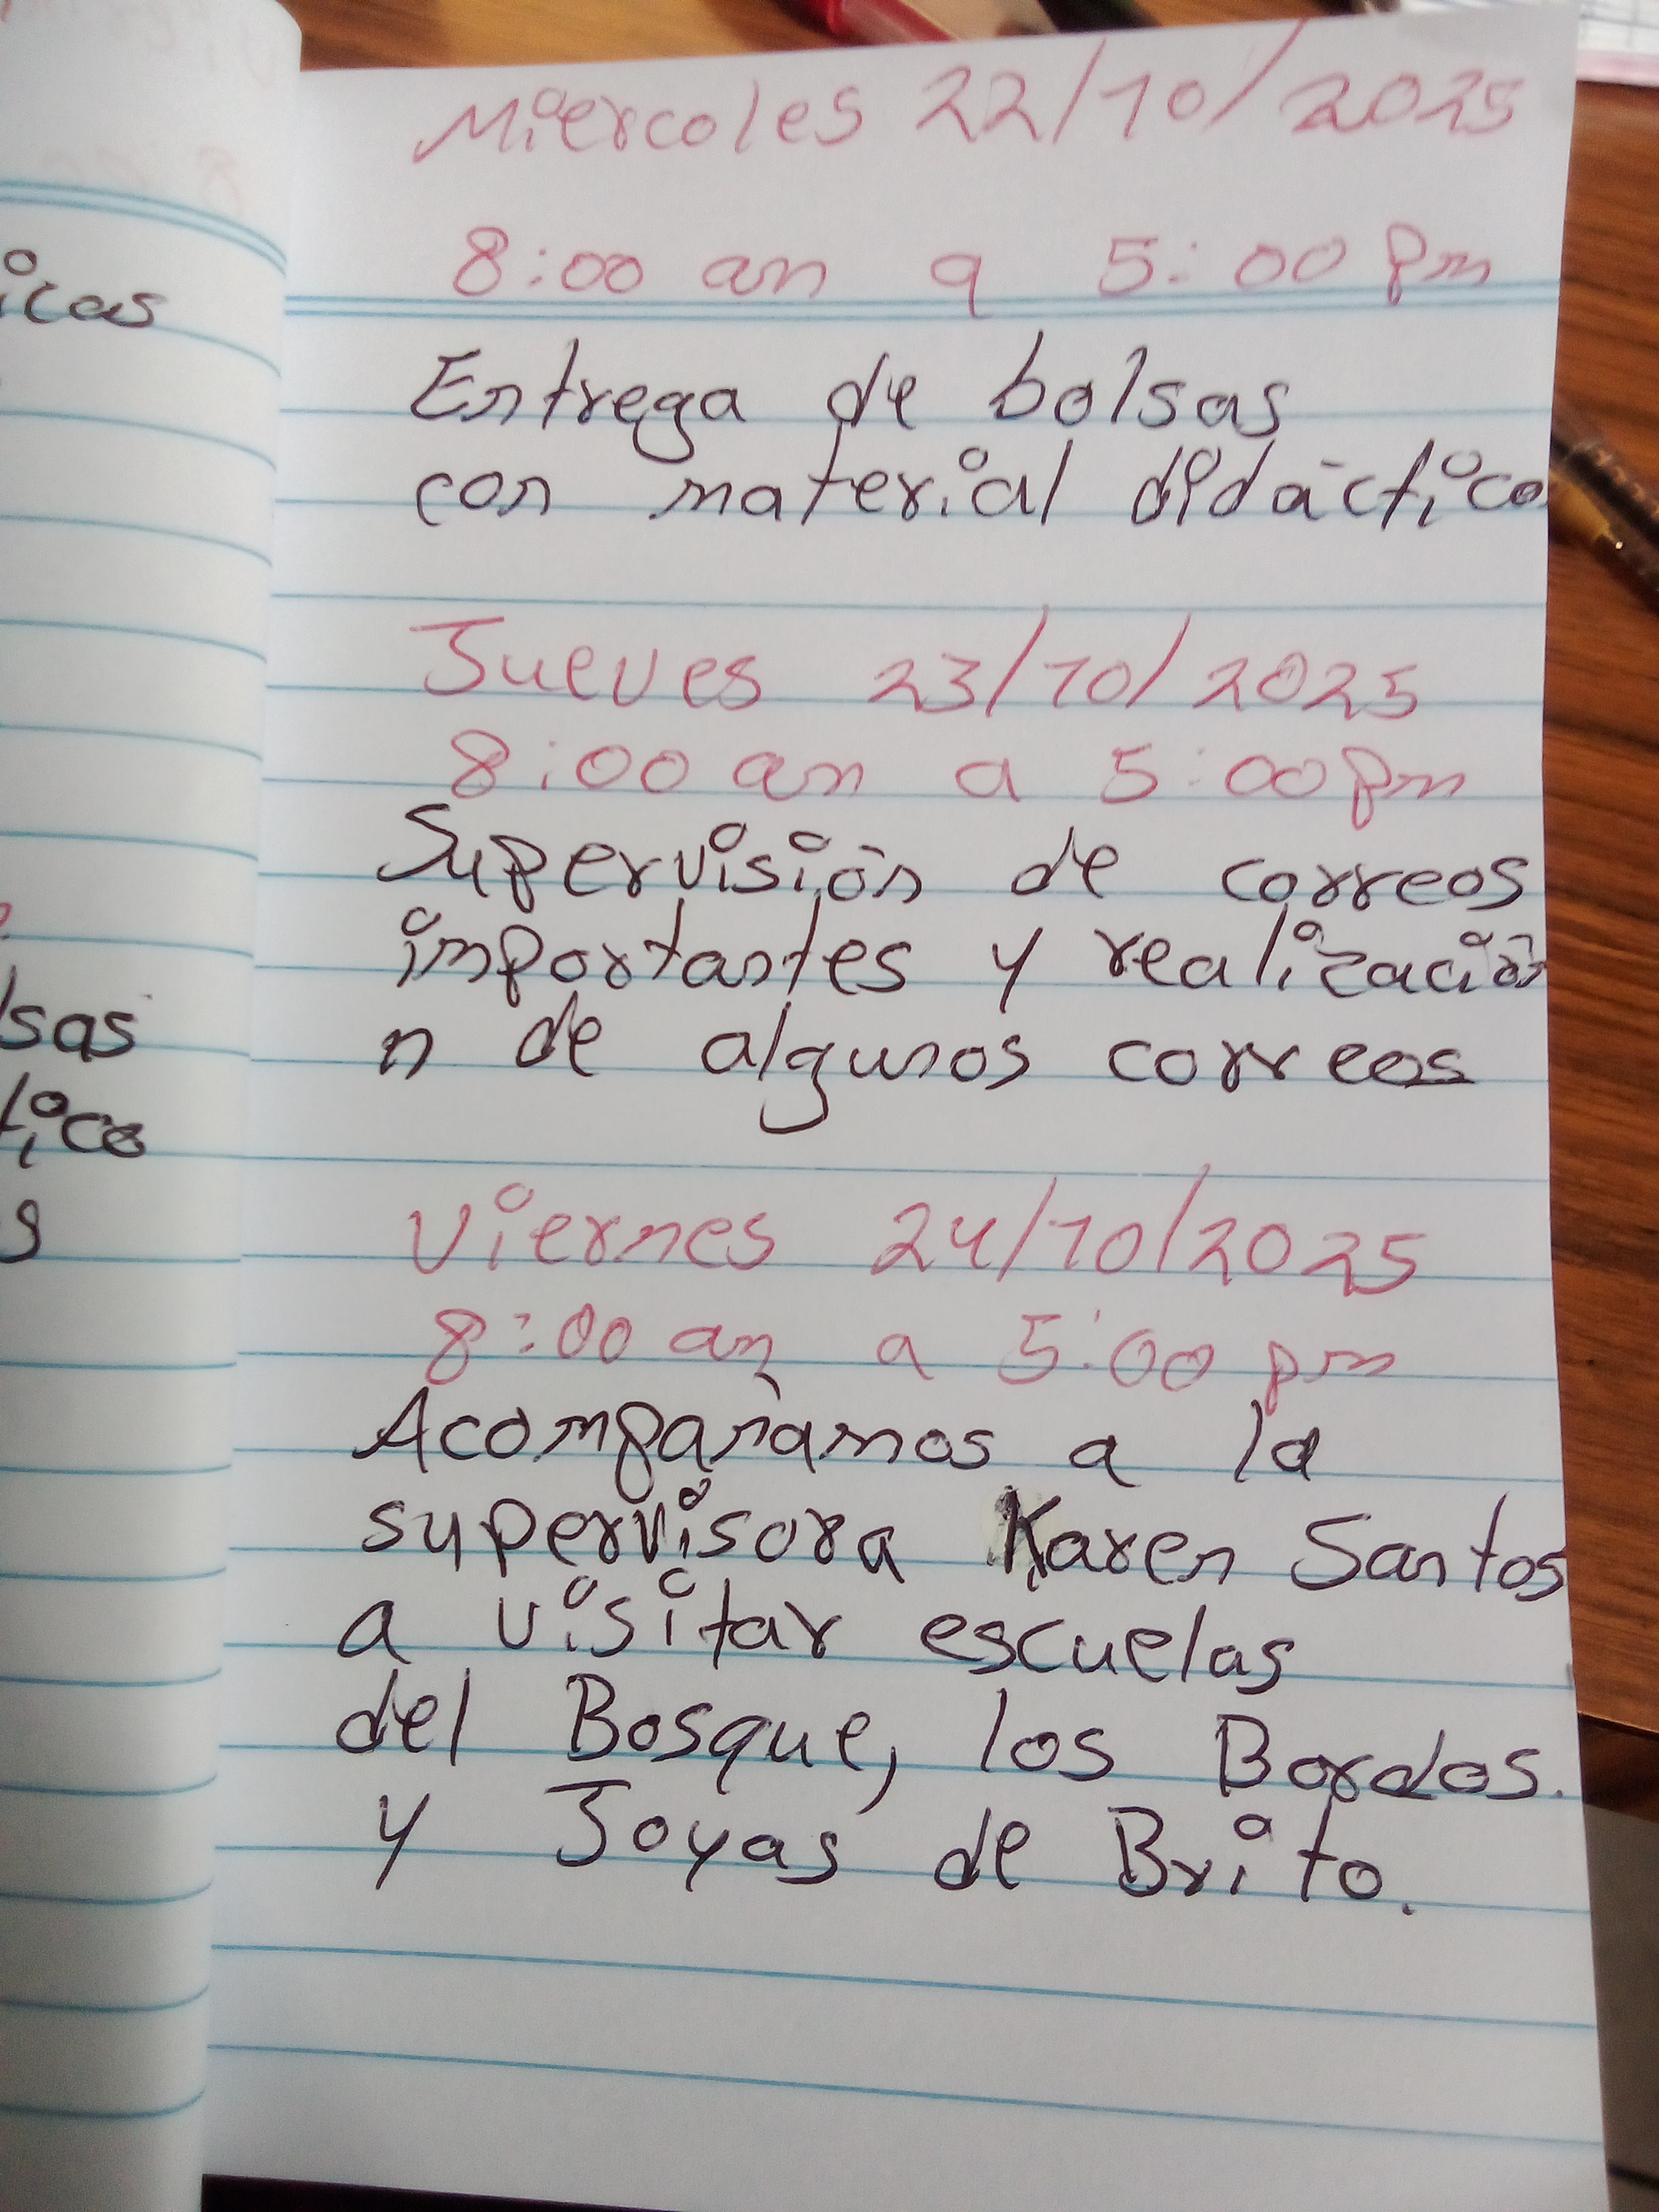 icas
lsas
tico
s
Miercoles 22/10/2025
8:00 am a 5:00 Pm
Entrega de bolsas
con material didáctico
Jueves 23/10/2025
8:00 am a 5:00 Pm
Supervisión de correos
importantes y realización
n de algunos correos
Viernes 24/10/2025
8:00 am a 5:00 pm
Acompañamos a la
supervisora Karen Santos
a visitar escuelas
del Bosque, los Bordos.
y Joyas de Brito.